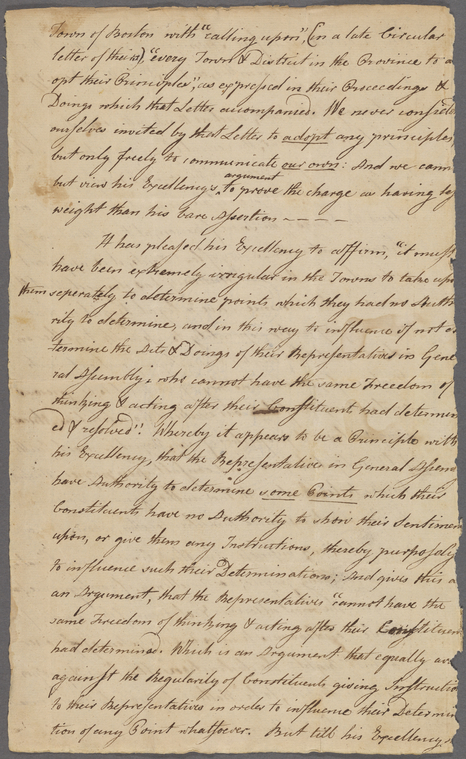 Town of Boston with "calling upon", (in a late Circular
letter of theirs), "every Town & District in the Province to a
opt their Principles", as expressed in their Proceedings &
Doings which that Letter accompanied. We never consider
ourselves invited by that Letter to adopt any principles,
but only freely to communicate our own: And we cann
but view his Excellency's argument to prove the charge as having les
weight than his bare Assertion
It has pleased his Excellency to affirm, "it must
have been extremely irregular in the Towns to take upo
them seperately to determine points which they had no Autho
rity to determine, and in this way to influence if not de
termine the Acts & Doings of their Representatives in Gene
ral Assembly; who cannot have the same Freedom of
thinking & acting after their Constituent had determin
ed & resolved". Whereby it appears to be a Principle with
his Excellency, that the Representatives in General Assem
have Authority to determine some Points which their
Constituents have no Authority to show their Sentimen
upon, or give them any Instructions, thereby purposely
to influence such their Determinations; And gives this a
an Argument, that the Representatives "cannot have the
same Freedom of thinking & acting after their Constituen
had determined. Which is an Argument that equally
against the Regularity of Constituents giving Instructio
to their Representatives in order to influence their Determin
tion of any Point whatsoever. But till his Excellency